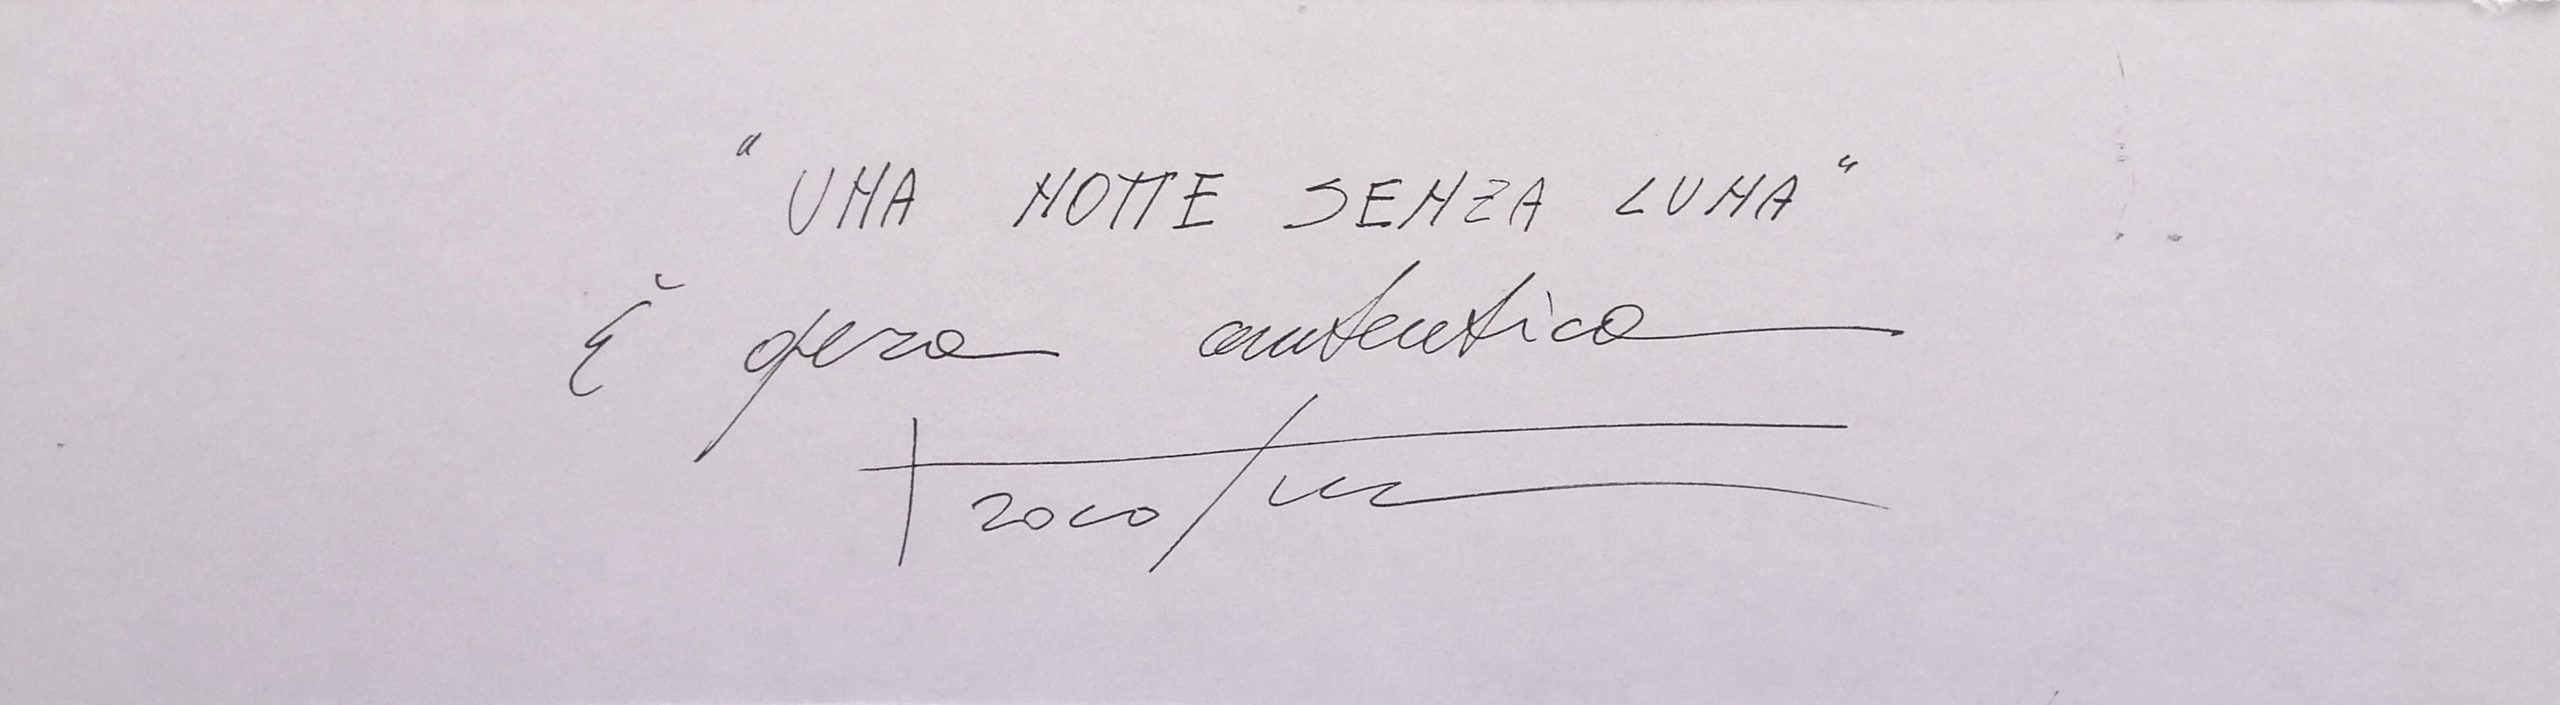 "UNA NOTTE SENZA LUNA"
È opera autentica